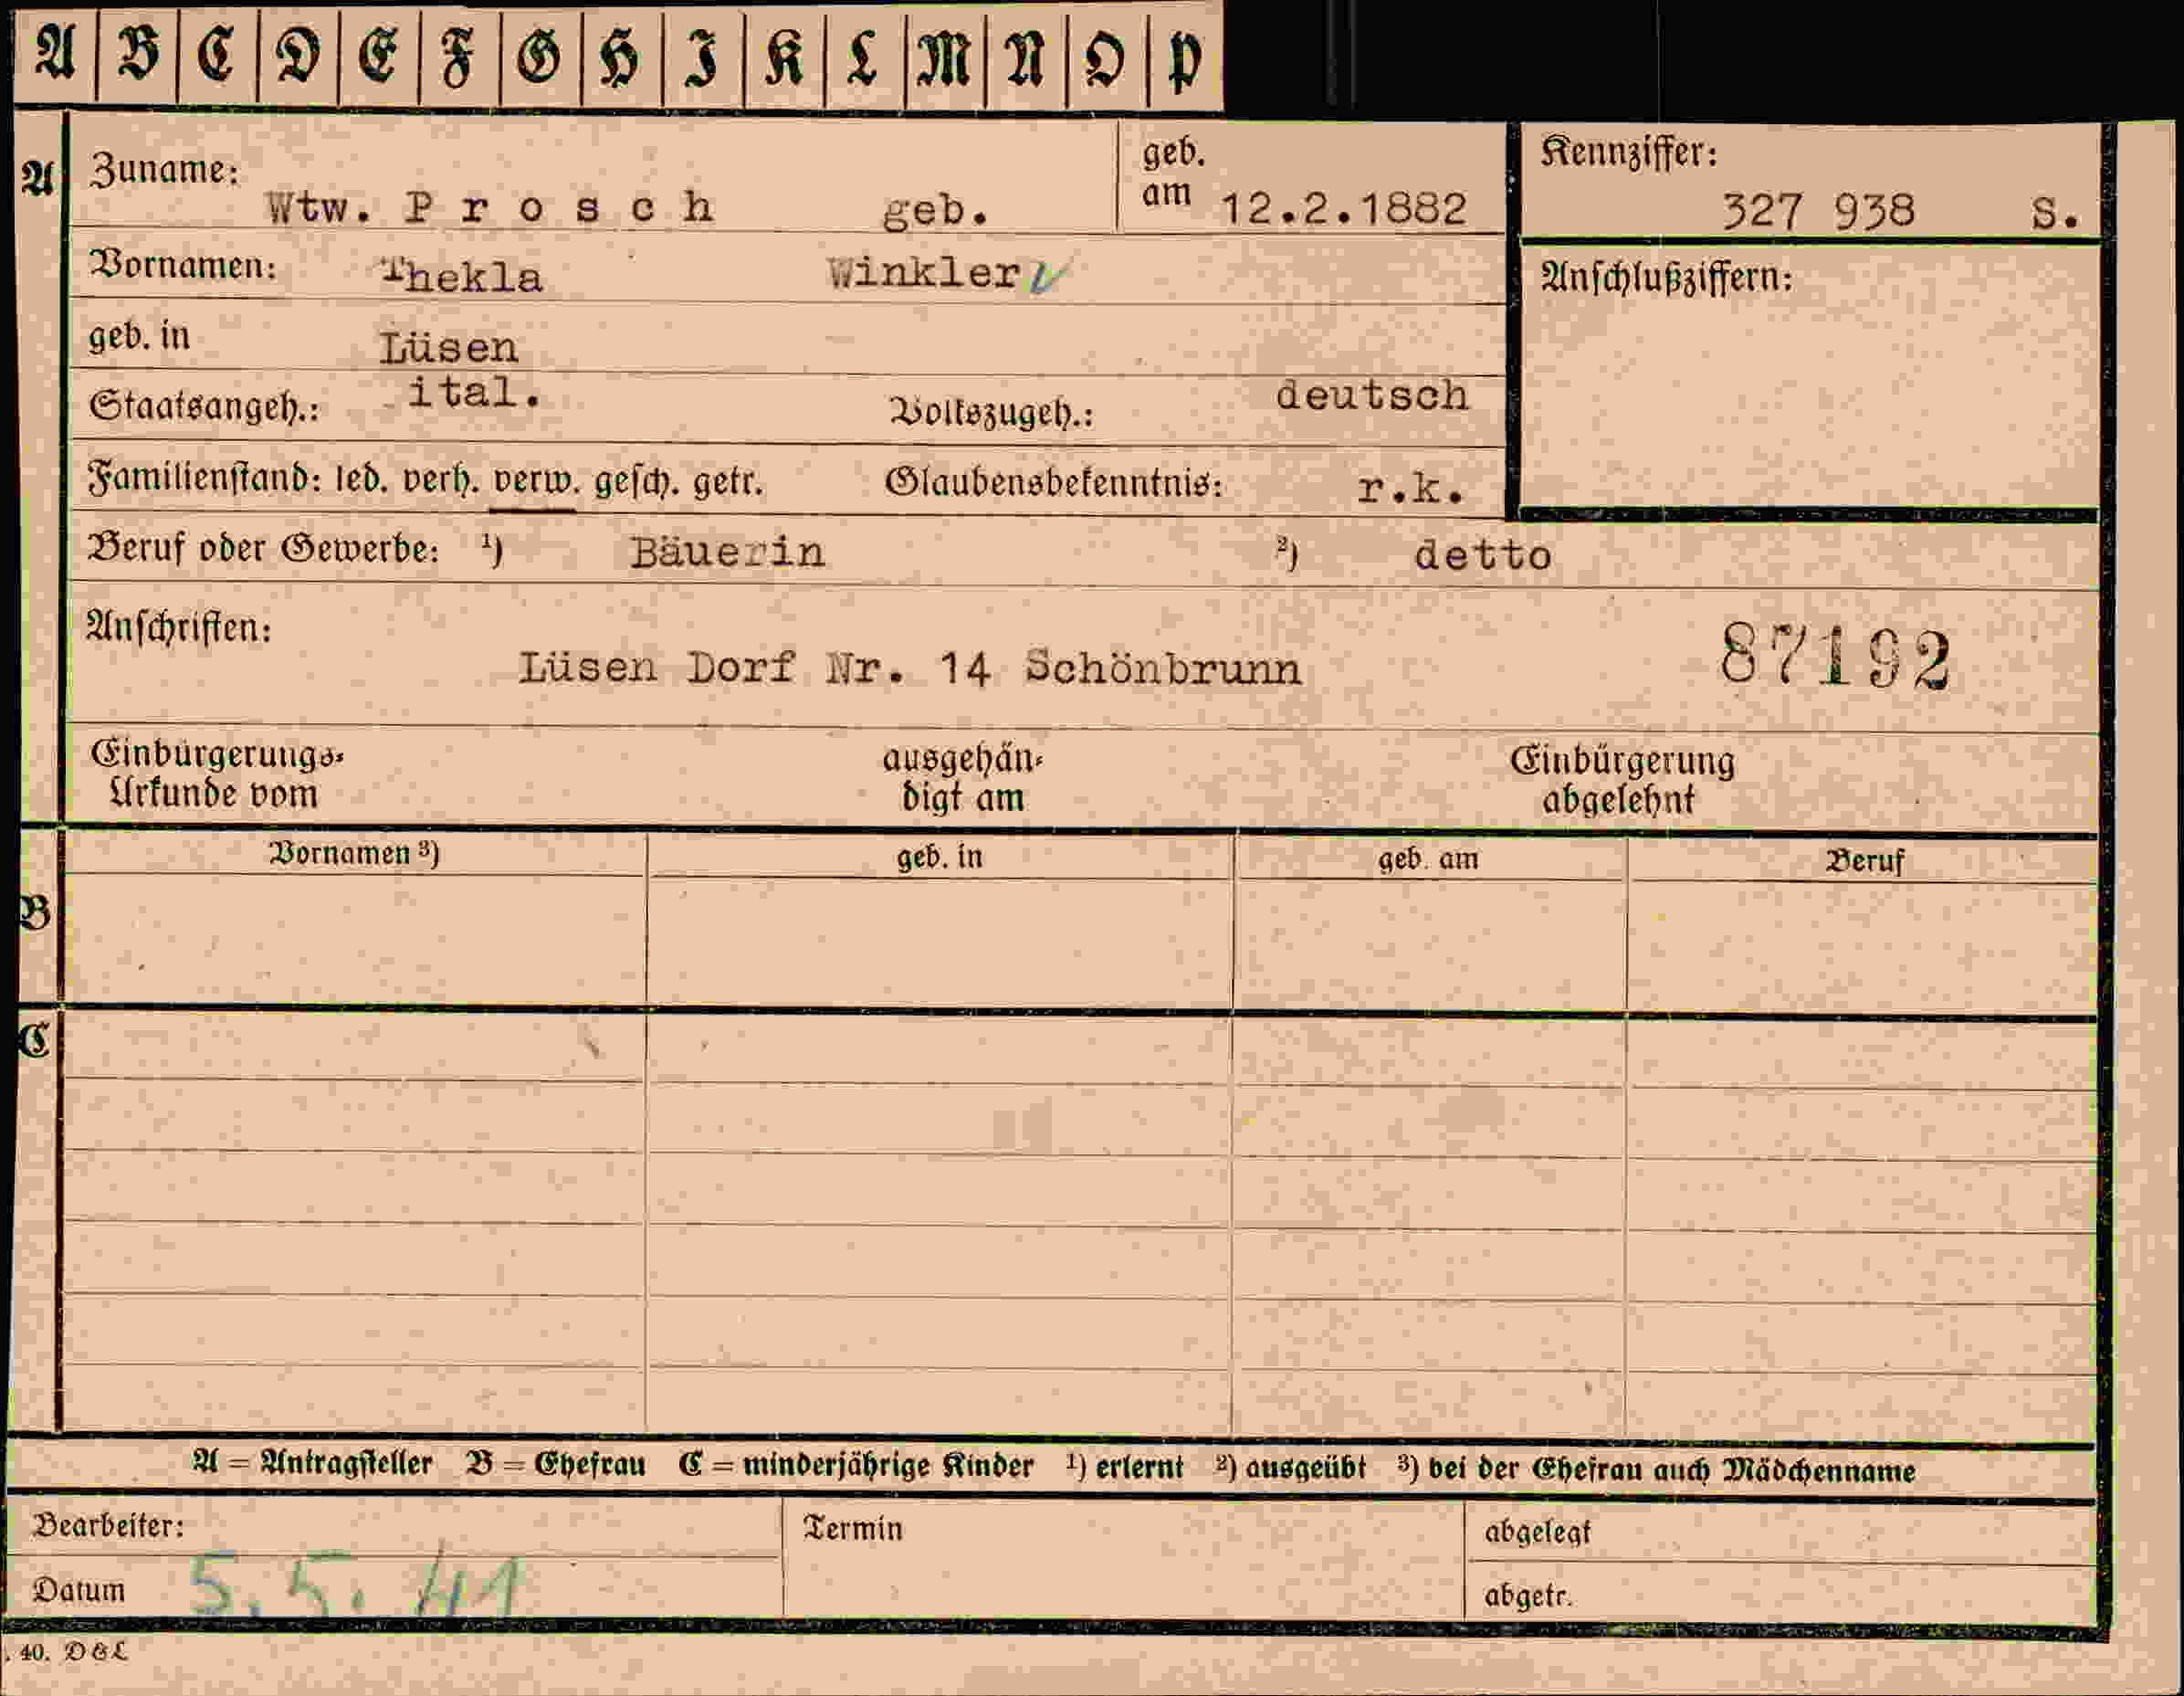 A B C D E F G H I K L M N O P
A Zuname: Wtw. P r o s c h geb. geb. am 12.2.1882 Kennziffer: 327 938 S.
Vornamen: Thekla Winkler Anschlußziffern:
geb. in Lüsen
Staatsangeh.: ital. Volkszugeh.: deutsch
Familienstand: led. verh. verw. gesch. getr. Glaubensbekenntnis: r.k.
Beruf oder Gewerbe: ¹) Bäuerin ²) detto
Anschriften: Lüsen Dorf Nr. 14 Schönbrunn 87192
Einbürgerungs- ausgehän- Einbürgerung
Urkunde vom digt am abgelehnt
Vornamen ³) geb. in geb. am Beruf
B
C
A = Antragsteller B = Ehefrau C = minderjährige Kinder ¹) erlernt ²) ausgeübt ³) bei der Ehefrau auch Mädchenname
Bearbeiter: Termin abgelegt
Datum 5.5.41 abgetr.
. 40. D&L